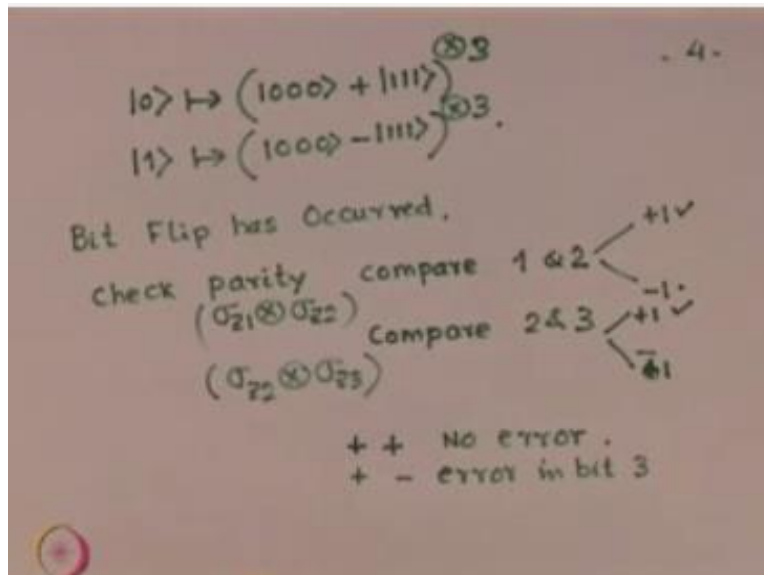 - 4 -
|0⟩ ↦ (|000⟩ + |111⟩)⊗3
|1⟩ ↦ (|000⟩ - |111⟩)⊗3.
Bit Flip has Occurred.
Check parity compare 1 & 2 +1 ✓
-1.
(σz1 ⊗ σz2)
Compare 2 & 3 +1 ✓
-1
(σz2 ⊗ σz3)
+ + No error.
+ - error in bit 3